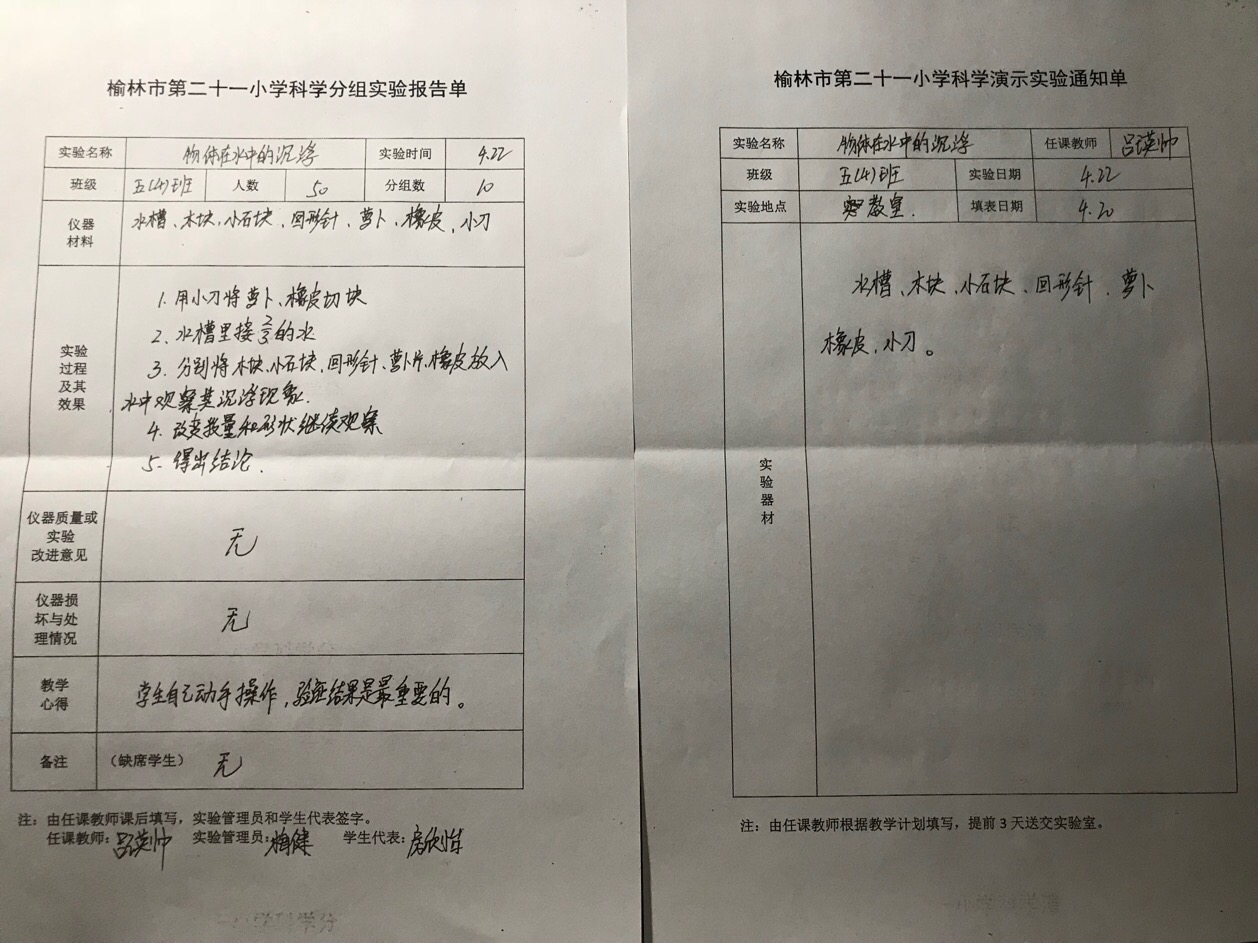 榆林市第二十一小学科学分组实验报告单
实验名称 物体在水中的沉浮 实验时间 4.22
班级 五(4)班 人数 50 分组数 10
仪器
材料
水槽、木块、小石块、回形针、萝卜、橡皮、小刀
实验
过程
及其
效果
1. 用小刀将萝卜、橡皮切块
2. 水槽里接2/3的水
3. 分别将木块、小石块、回形针、萝卜片、橡皮放入
水中观察其沉浮现象.
4. 改变 量和形状继续观察
5. 得出结论.
仪器质量或
实验
改进意见
无
仪器损
坏与处
理情况
无
教学
心得
学生自己动手操作,验证结果是最重要的。
备注 (缺席学生) 无
注：由任课教师课后填写，实验管理员和学生代表签字。
任课教师：吕瑛帅 实验管理员： 学生代表：
榆林市第二十一小学科学演示实验通知单
实验名称 物体在水中的沉浮 任课教师 吕瑛帅
班级 五(4)班 实验日期 4.22
实验地点 教室. 填表日期 4.20
实
验
器
材
水槽、木块、小石块、回形针、萝卜
橡皮,小刀。
注：由任课教师根据教学计划填写，提前 3 天送交实验室。